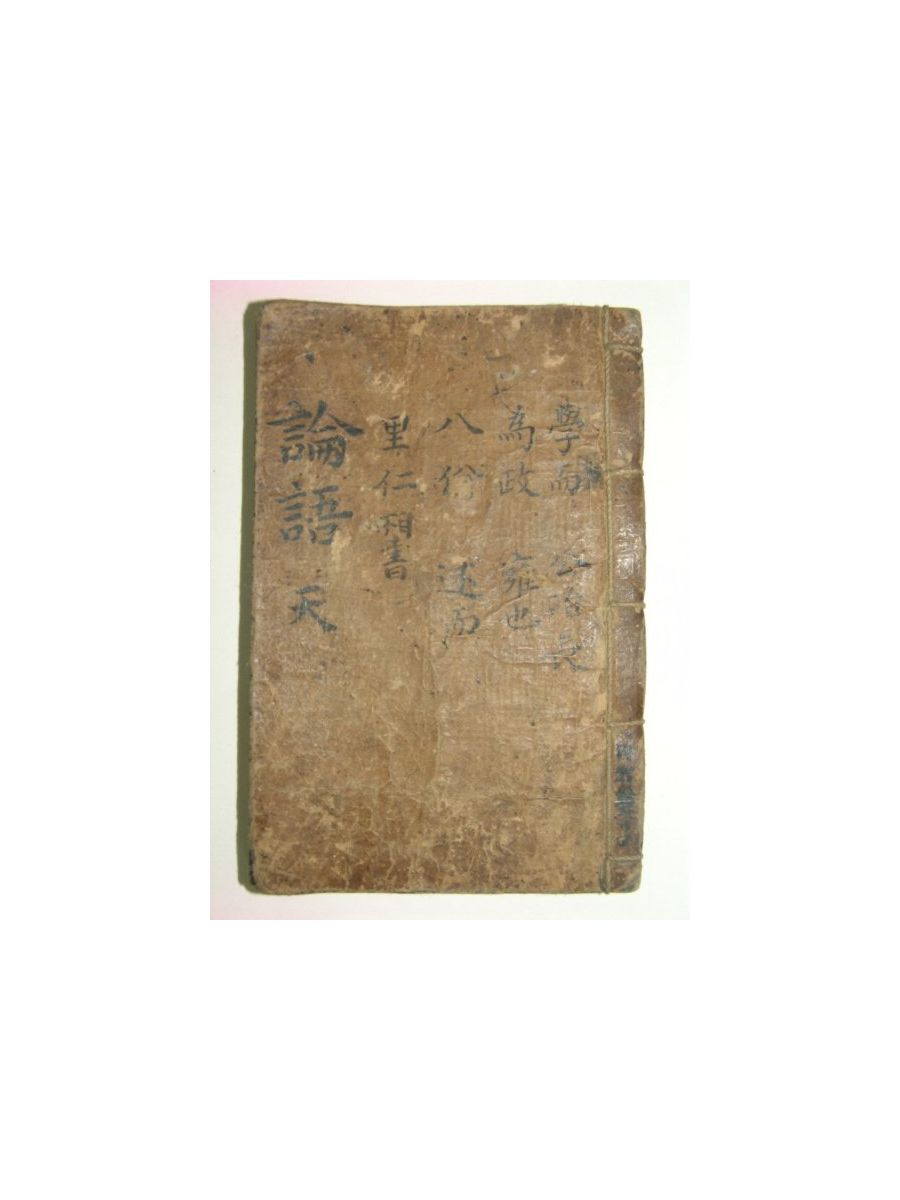 學而 公冶長
為政 雍也
八佾 述而
里仁 相書
論語 天